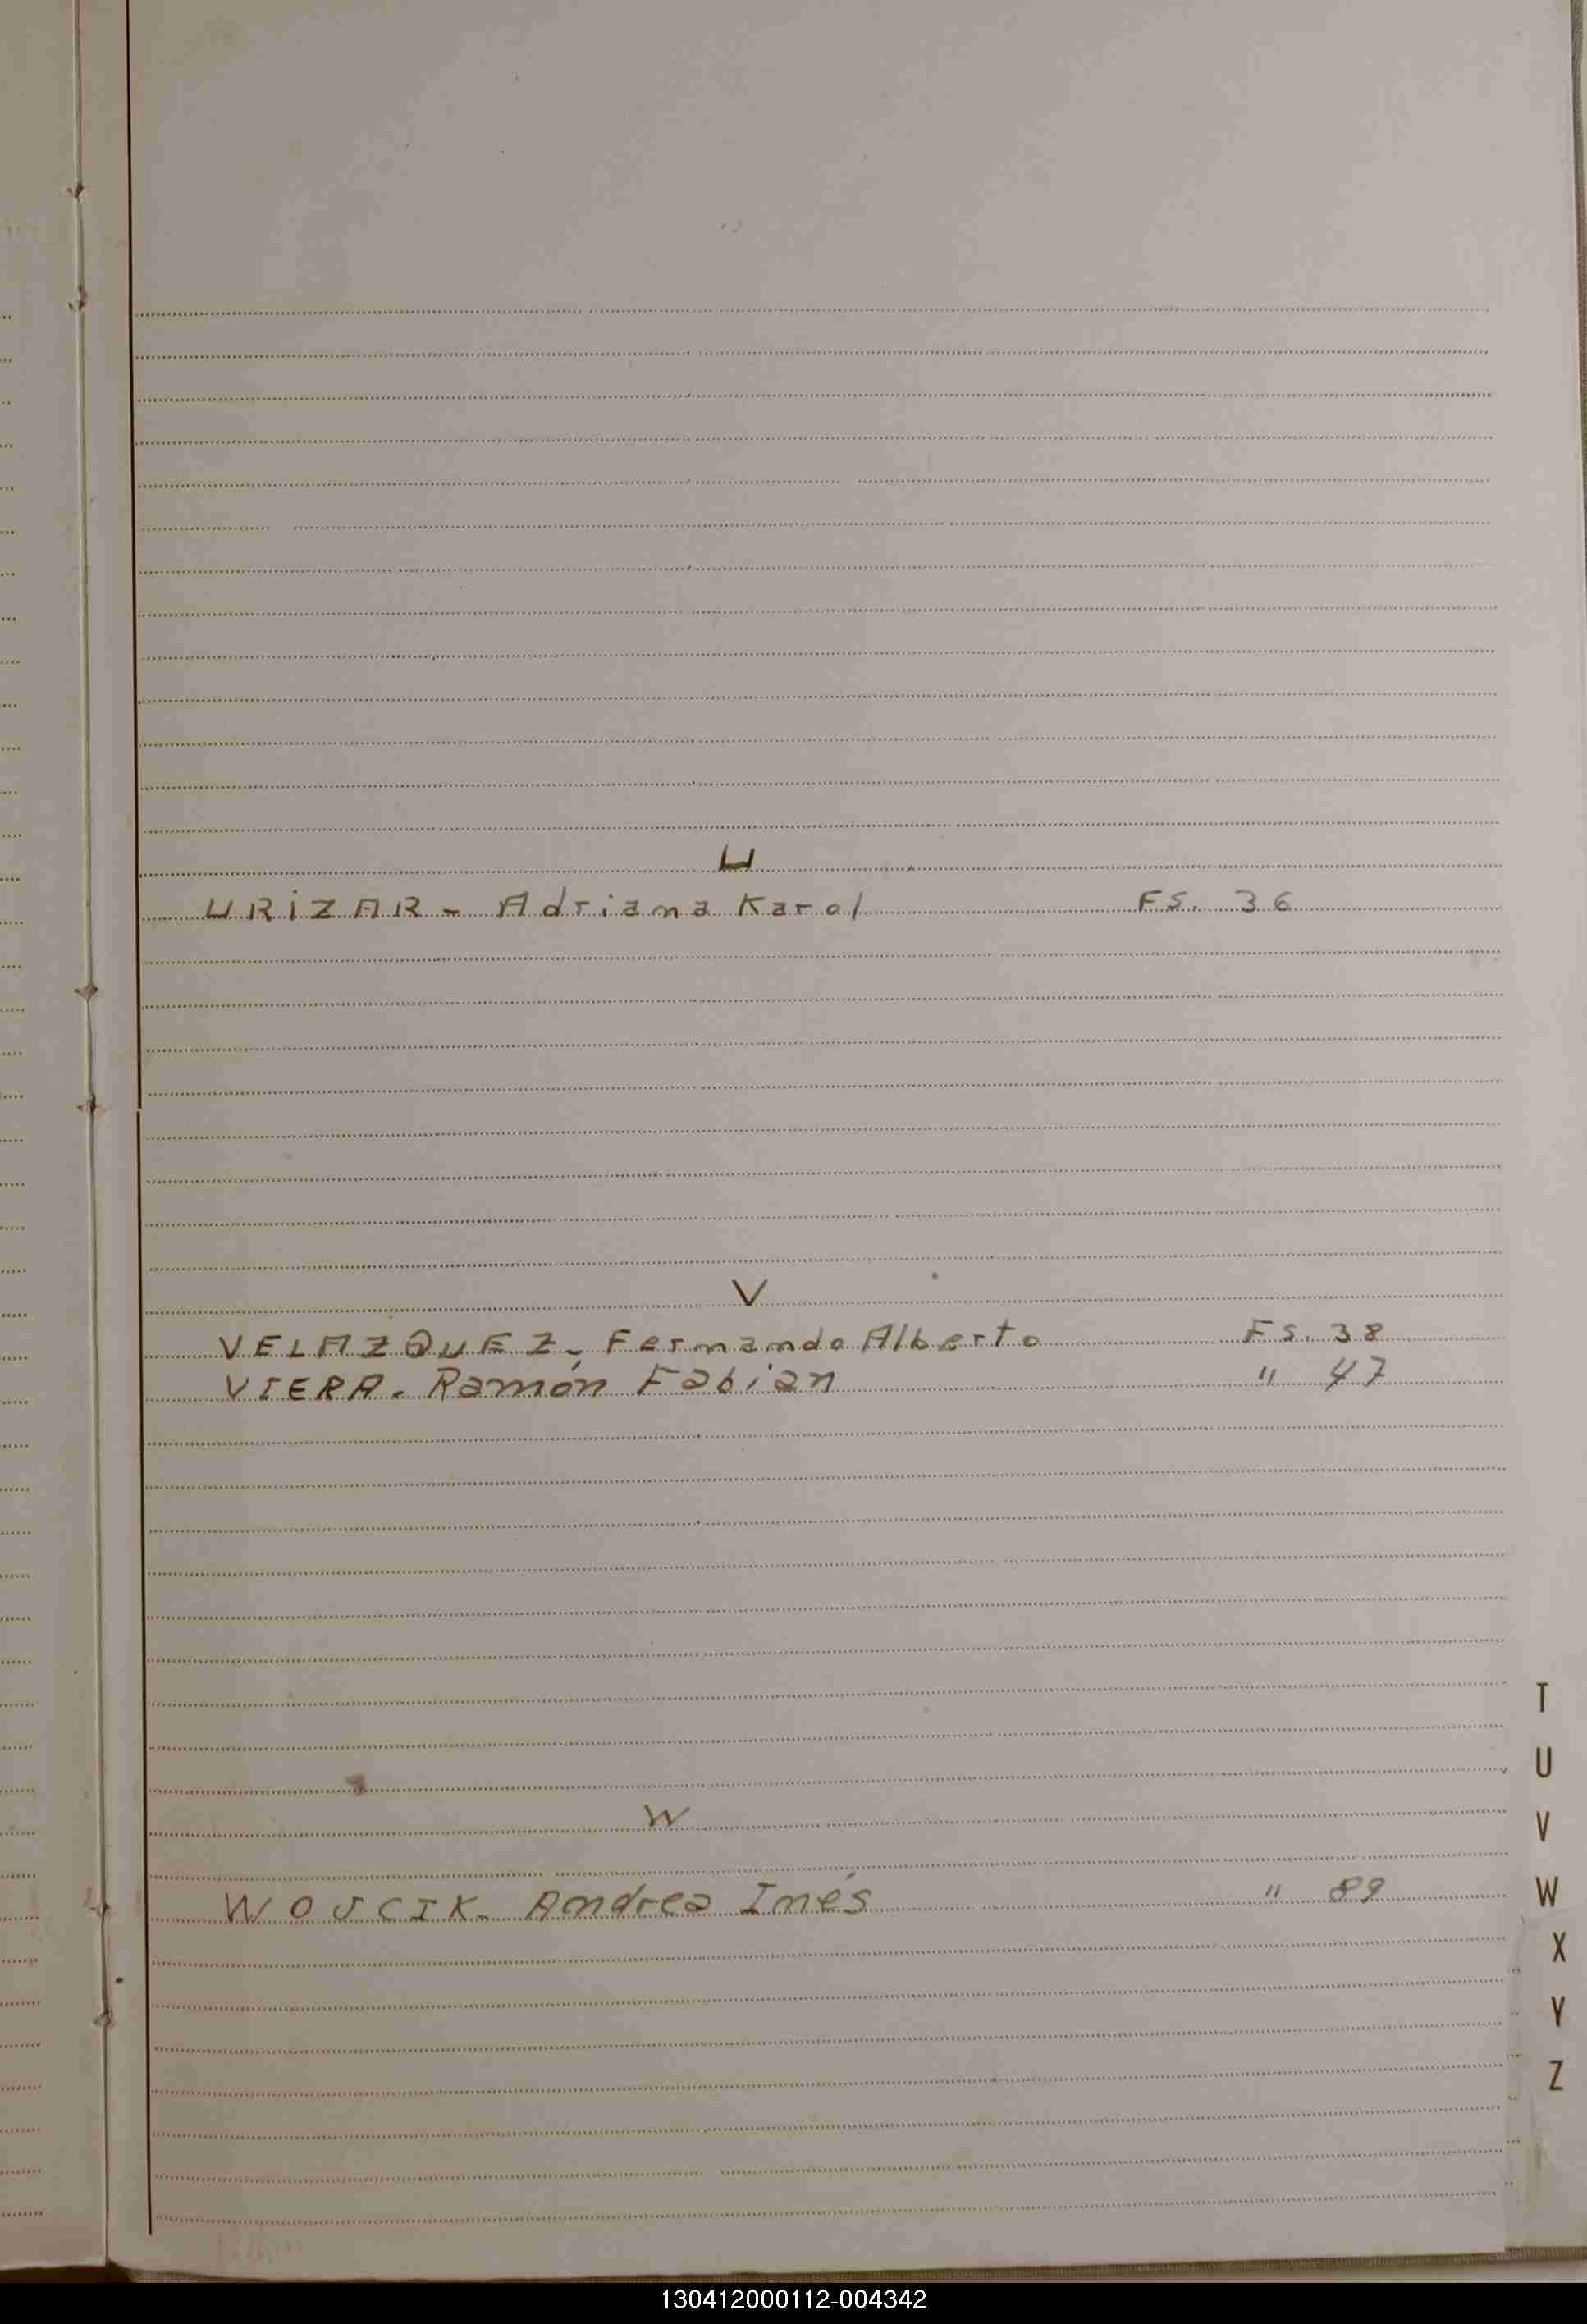 U
URIZAR - Adriana Karol FS. 36
V
VELAZQUEZ - Fernando Alberto FS. 38
VIERA - Ramón Fabian " 47
W
WOJCIK - Andrea Inés " 89
T
U
V
W
X
Y
Z
130412000112-004342